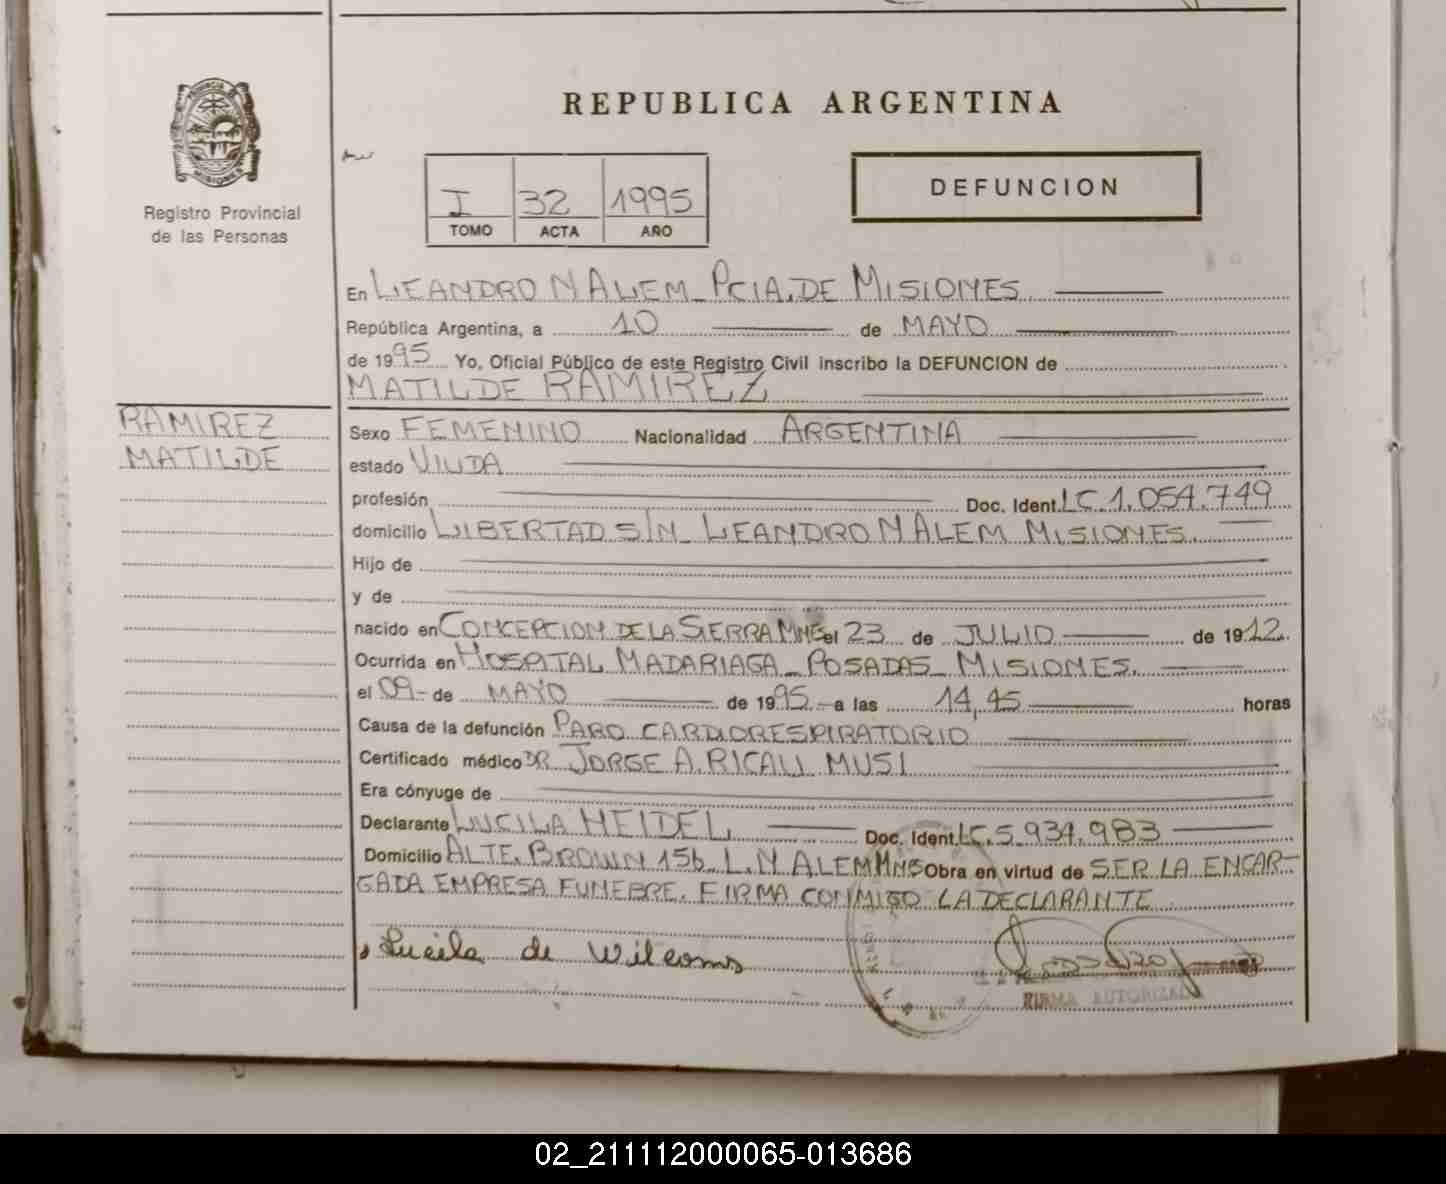 REPUBLICA ARGENTINA
PROVINCIA DE
MISIONES
Registro Provincial
de las Personas
I 32 1995
TOMO ACTA AÑO
DEFUNCION
En LEANDRO N ALEM_ PCIA. DE MISIONES
República Argentina, a 10 de MAYO
de 1995 Yo, Oficial Público de este Registro Civil inscribo la DEFUNCION de
MATILDE RAMIREZ
RAMIREZ
MATILDE
Sexo FEMENINO Nacionalidad ARGENTINA
estado VIUDA
profesión Doc. Ident. LC. 1.054.749
domicilio LIBERTAD S/N_ LEANDRO N ALEM MISIONES.
Hijo de
y de
nacido en CONCEPCION DE LA SIERRA MNES el 23 de JULIO de 1912.
Ocurrida en HOSPITAL MADARIAGA_ POSADAS_ MISIONES.
el 09- de MAYO de 1995.- a las 14,45 horas
Causa de la defunción PARO CARDIORESPIRATORIO
Certificado médico DR. JORGE A. RICALI MUSI
Era cónyuge de
Declarante LUCILA HEIDEL Doc. Ident. LC. 5.934.983
Domicilio ALTE. BROWN 156. L.N ALEM MNS Obra en virtud de SER LA ENCAR-
GADA EMPRESA FUNEBRE. FIRMA CONMIGO LA DECLARANTE
Lucila de Wilcoms
FIRMA AUTORIZADA
02_211112000065-013686